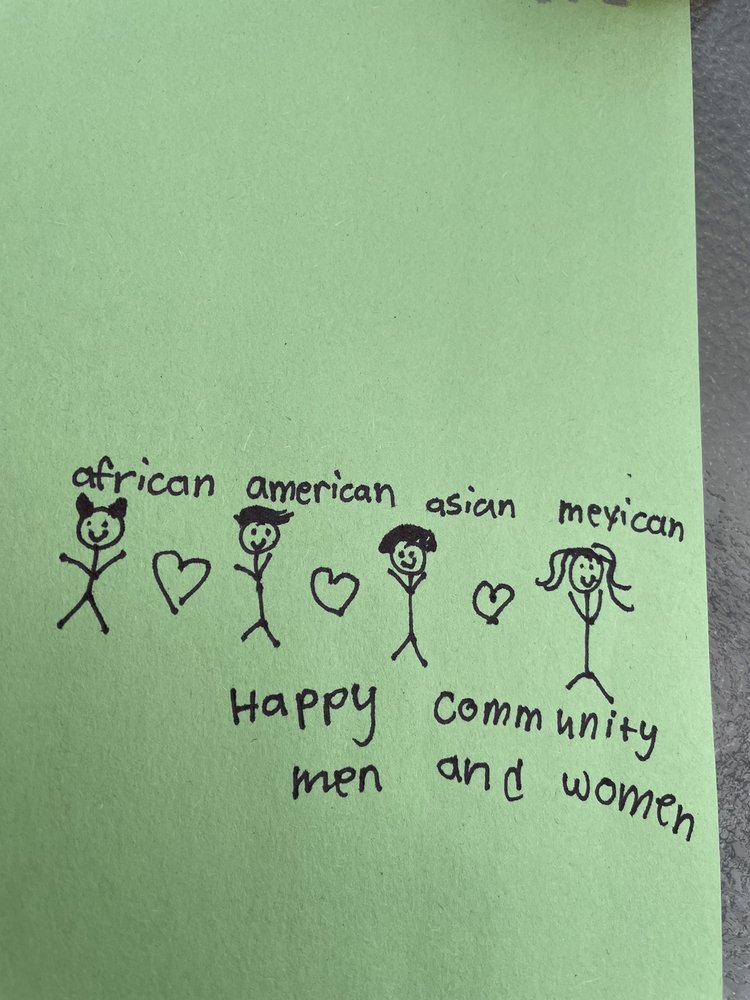 african american asian mexican
Happy community
men and women